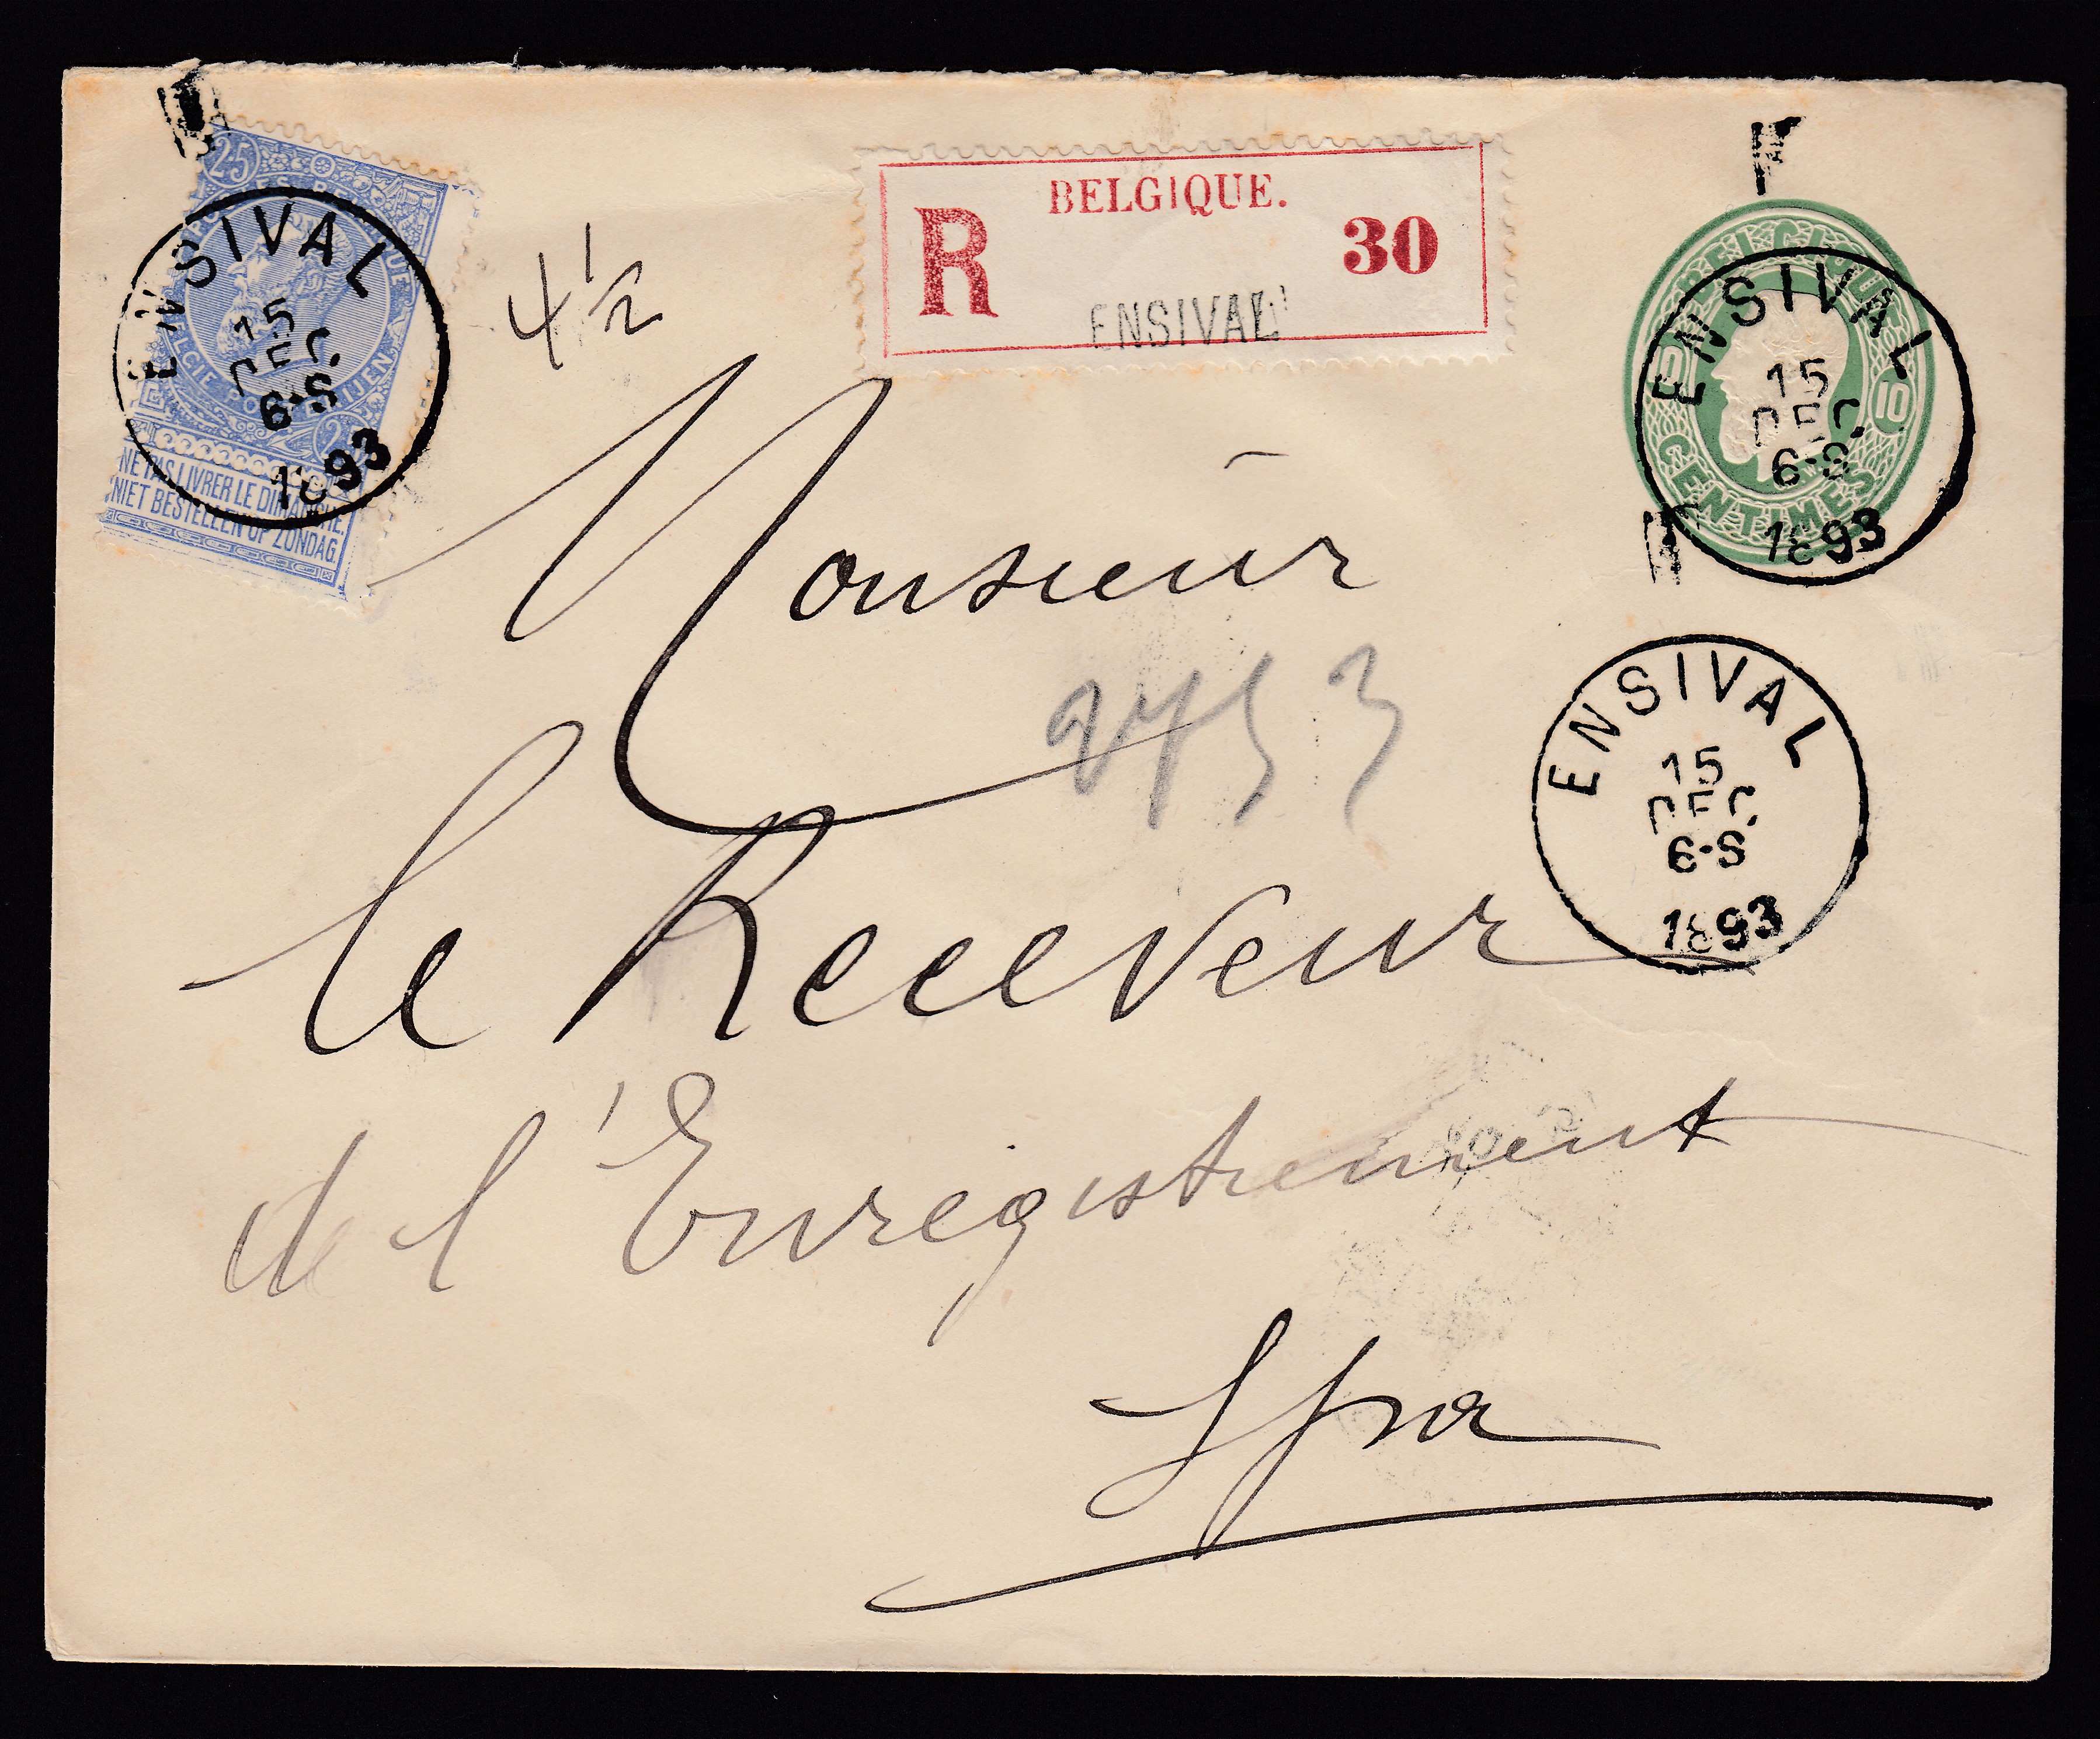 25
POSTES BELGIQUE
BELGIE POSTERIJEN
25
NE PAS LIVRER LE DIMANCHE.
NIET BESTELLEN OP ZONDAG.
ENSIVAL
15
DEC.
6-S
1893
4 1/2
BELGIQUE.
R
30
ENSIVAL
BELGIQUE
10
10
CENTIMES
ENSIVAL
15
DEC.
6-S
1893
Monsieur
ENSIVAL
15
DEC.
6-S
1893
le Receveur
de l'Enregistrement
Spa